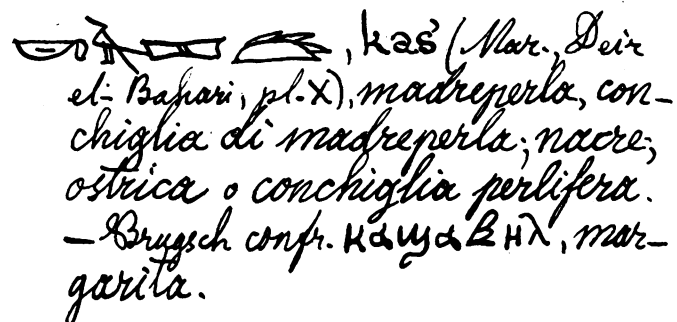 , kaš (Mar., Deir
el-Bahari, pl. X), madreperla, con-
chiglia di madreperla; nacre;
ostrica o conchiglia perlifera.
— Brugsch confr. ⲕⲁϣⲁⲃⲏⲗ, mar-
garita.